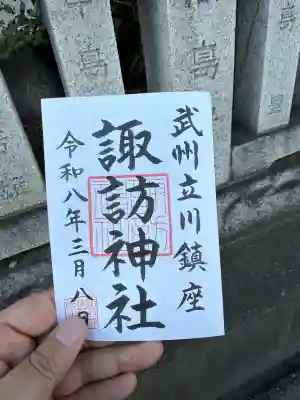 武州立川鎮座
諏訪神社
令和八年三月八日
島
島
島